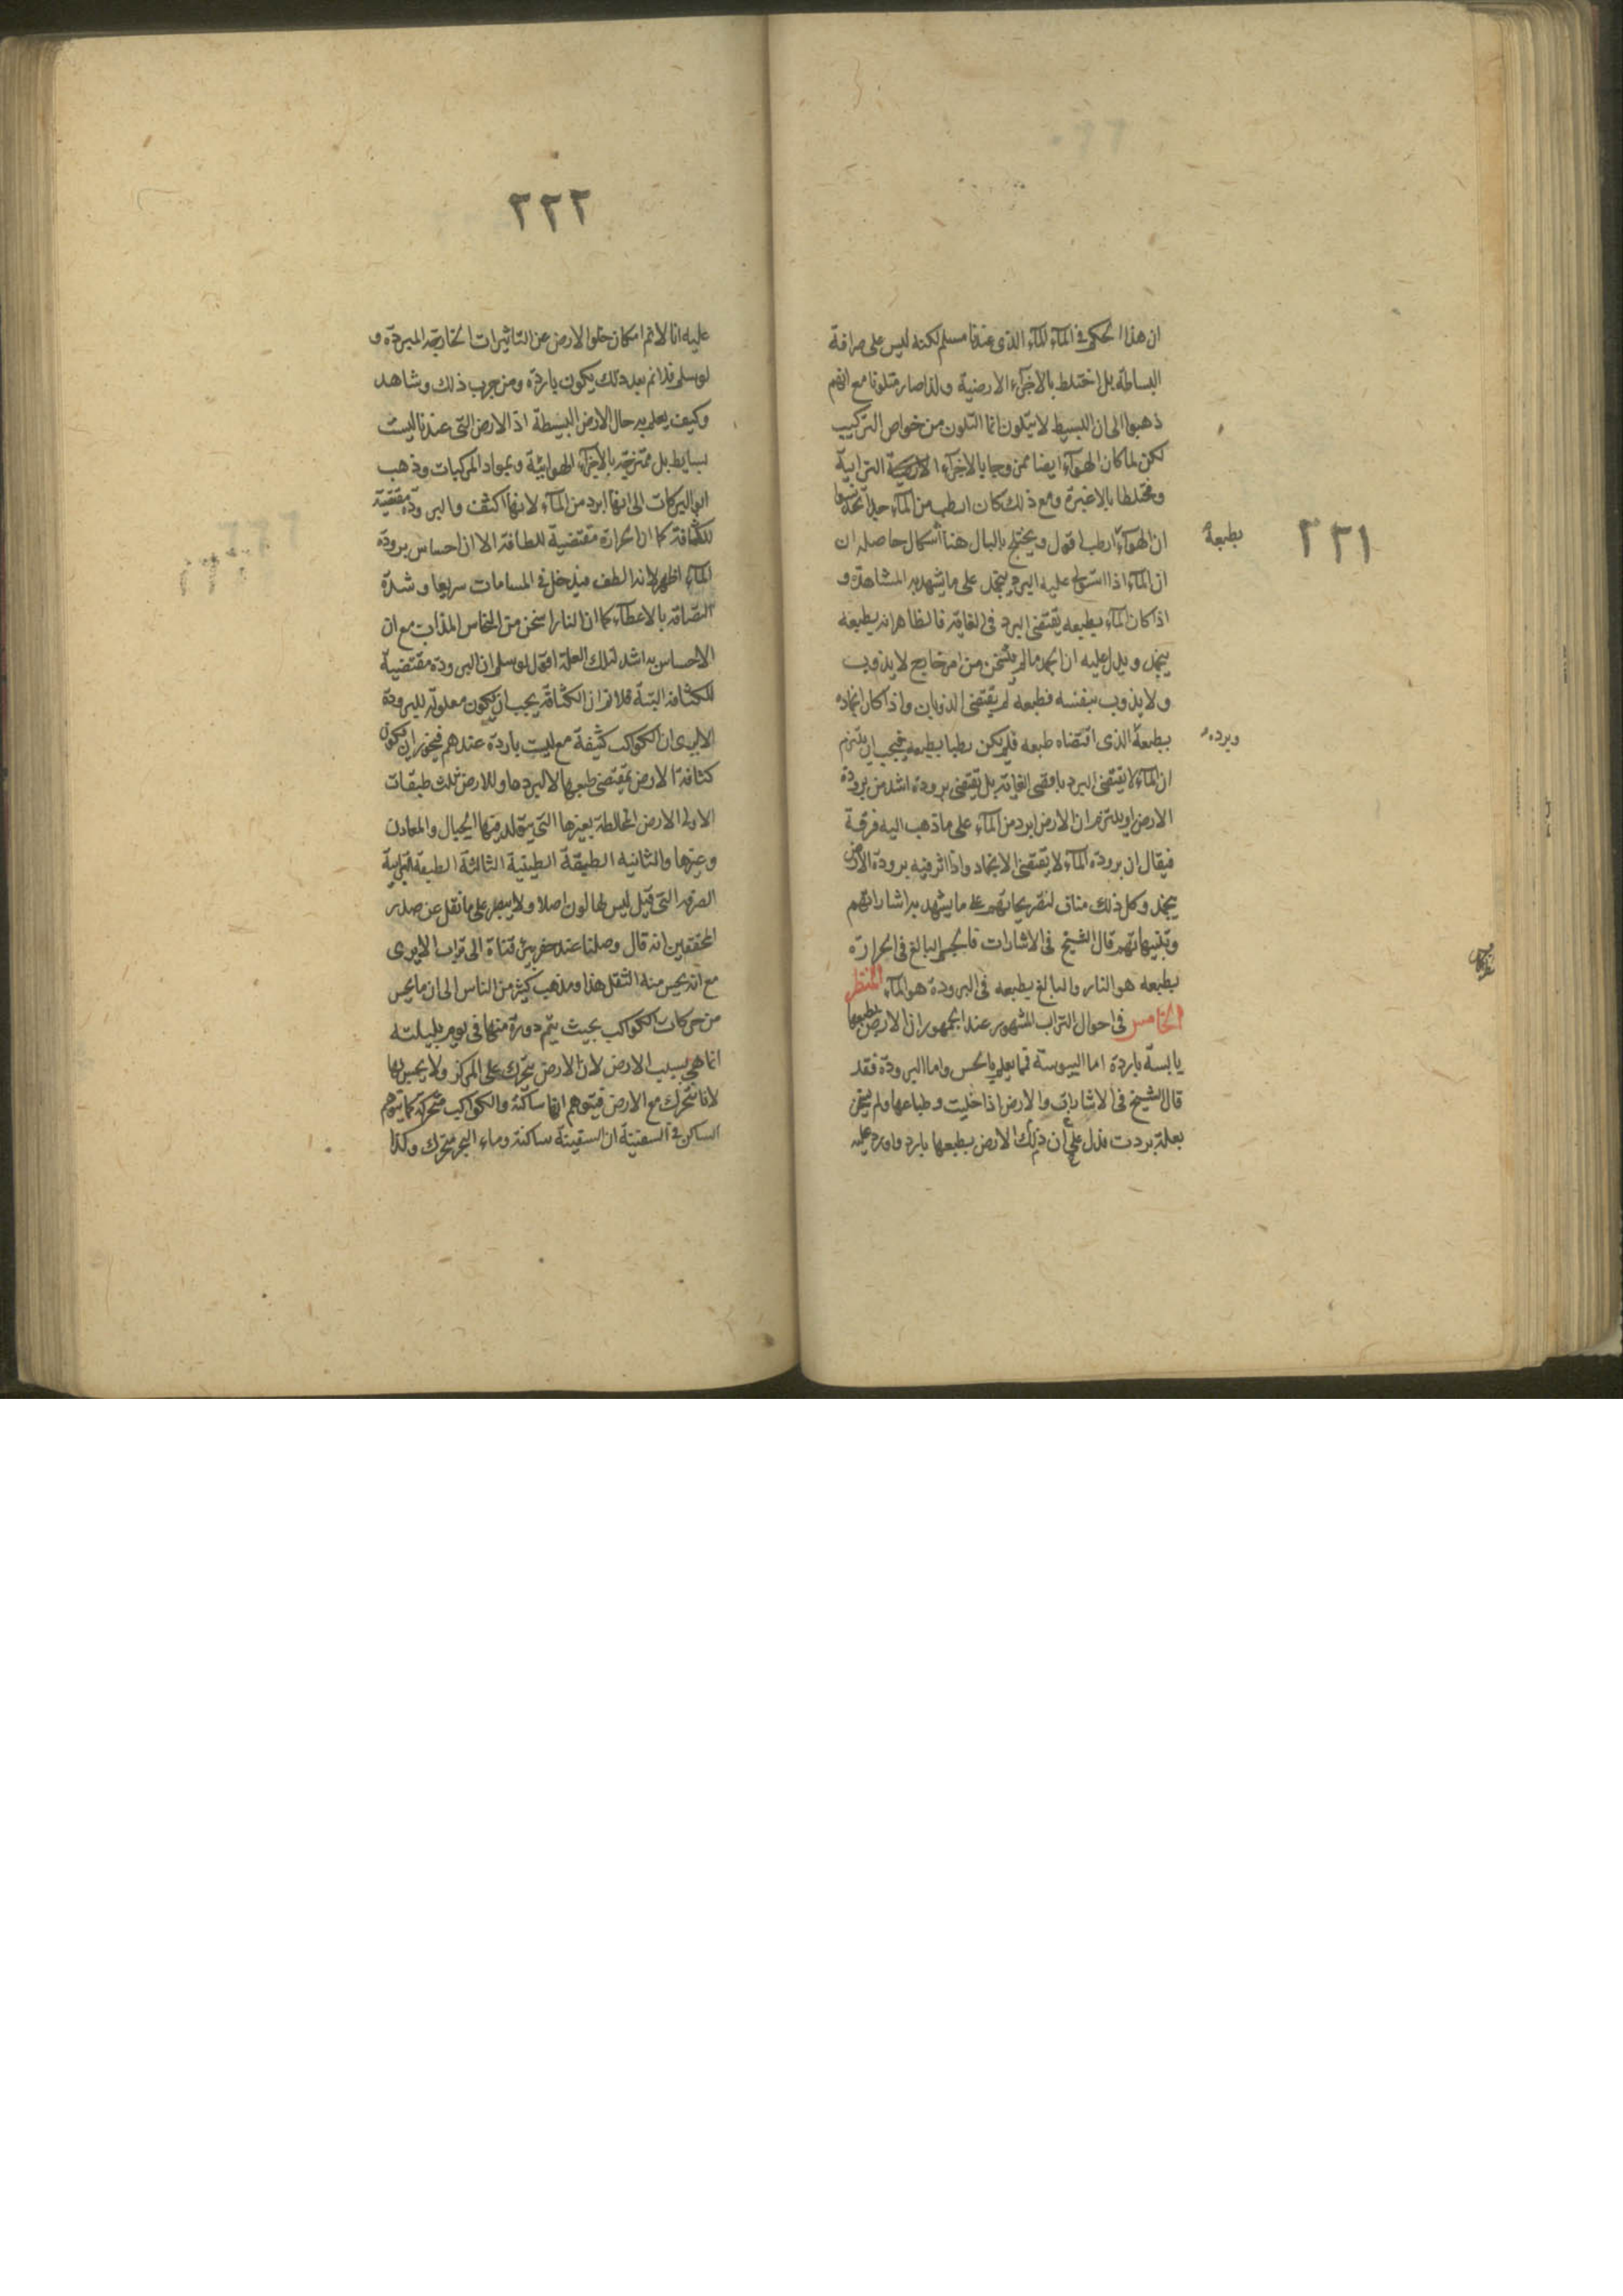 ٢٢١
ان هذا الحكم فى المآء للمآء الذى عندنا مسلم لكنه ليس على صرافة
البساطة بل اختلط بالاجزآء الارضية ولذا صار متلونا مع انهم
ذهبوا الى ان البسيط لا يتلون انما التلون من خواص التركيب
لكن لما كان الهوآء ايضا ممزوجا بالاجزآء الارضية الترابية
ومختلطا بالاغبرة ومع ذلك كان ارطب من المآء
ان الهوآء ارطب اقول ويختلج بالبال هنا اشكال حاصله ان
ان المآء اذا استولى عليه البرد ينجمد على ما يشهد به المشاهدة و
اذا كان المآء بطبعه يقتضى البرد فى الغاية فالظاهر انه بطبعه
ينجمد ويدل عليه ان الجمد ما لم يتسخن من امر خارج لا يذوب
ولا يذوب بنفسه فطبعه لم يقتضى الذوبان واذا كان انجماده
بطبعه الذى اقتضاه طبعه فلم يكن رطبا بطبعه فيجب ان يلتزم
ان المآء لا يقتضى البرد باقصى الغاية بل يقتضى برودة اشد من برودة
الارض او يلتزم ان الارض ابرد من المآء على ما ذهب اليه فرقة
فيقال ان برودة المآء لا يقتضى الانجماد واذا اثر فيه برودة الارض
ينجمد وكل ذلك مناف لتصريحاتهم على ما يشهد به اشاراتهم
وتنبيهاتهم قال الشيخ فى الاشارات فالجسم البالغ فى الحرارة
بطبعه هو النار والبالغ بطبعه فى البرودة هو المآء المنظر
الخامس فى احوال التراب المشهور عند الجمهور ان الارض بطبعها
يابسة باردة اما اليبوسة فما يعلم بالحس واما البرودة فقد
قال الشيخ فى الاشارات والارض اذا خليت وطباعها ولم تسخن
بعلة بردت فدل على ان ذلك الارض بطبعها بارد واورد عليه
بطبعه
وبرده
٢٢٢
عليه انا لا نم امكان خلو الارض عن التاثيرات الخارجة المبردة و
لو سلم فلا نم بعد ذلك يكون باردة ومن جرب ذلك وشاهد
وكيف يعلم به حال الارض البسيطة اذ الارض التى عندنا ليست
بسايط بل ممتزجة بالاجزآء الهوائية وبمواد المركبات وذهب
ابو البركات الى انها ابرد من المآء لانها اكثف والبرودة مقتضية
للكثافة كما ان الحرارة مقتضية للطافة الا ان احساس برودة
المآء اظهر لانه الطف فيدخل فى المسامات سريعا وشدة
التصاقه بالاعضآء كما ان النار اسخن من النحاس المذاب مع ان
الاحساس به اشد لتلك العلة اقول لو سلم ان البرودة مقتضية
للكثافة البتة فلا نم ان الكثافة يجب ان يكون معلولة للبرودة
الا يرى ان الكواكب كثيفة مع ليست باردة عندهم فيجوز ان يكون
كثافة الارض بمقتضى طبعها لا لبردها وللارض ثلث طبقات
الاولى الارض المخالطة بغيرها التى يتولد فيها الجبال والمعادن
وغيرها والثانية الطبقة الطينية الثالثة الطبقة الترابية
الصرفة التى قيل ليس لها لون اصلا ولا يبصر على ما نقل عن صدر
المحققين انه قال وصلنا عند حفر بئر قناة الى تراب لا يرى
مع انه يحس منه الثقل هذا ومذهب كثير من الناس الى ان ما يحس
من حركات الكواكب بحيث يتم دورة منها فى يوم بليلته
انما هى بسبب الارض لان الارض يتحرك على المركز ولا يحس لها
لانا نتحرك مع الارض فيتوهم انها ساكنة والكواكب متحركة كما يتوهم
الساكن فى السفينة ان السفينة ساكنة وماء البحر متحرك وكذا